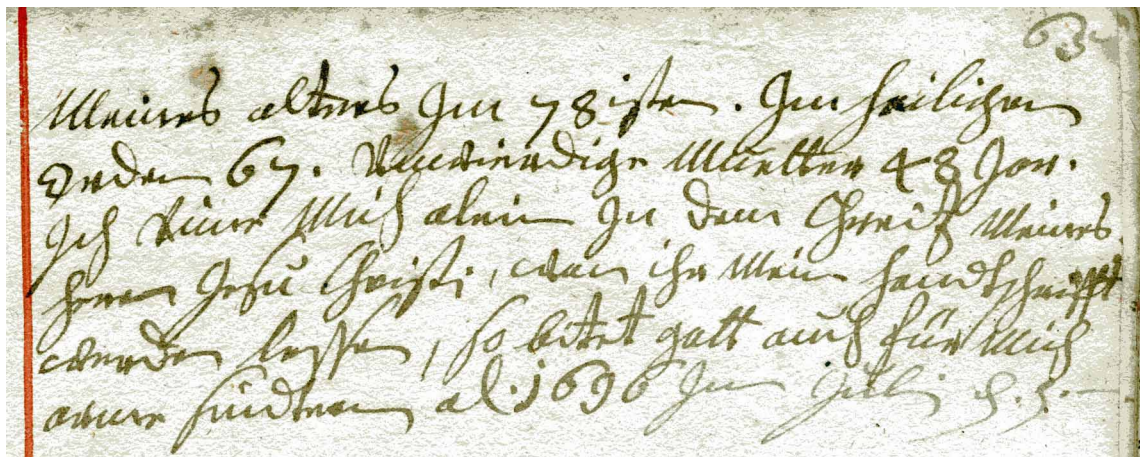 63
Meines alters Jm 78isten. Jm heiligen
Orden 67. Vnwierdige Muetter 48 Jar.
Jch Rüme Mich alein Jn dem Creitz Meines
heren Jesu Christi, wan ihr Mein handtschrifft
werden lessen, so bitet gott auch für Mich
arme sinderin al. 1696 Jm Julij